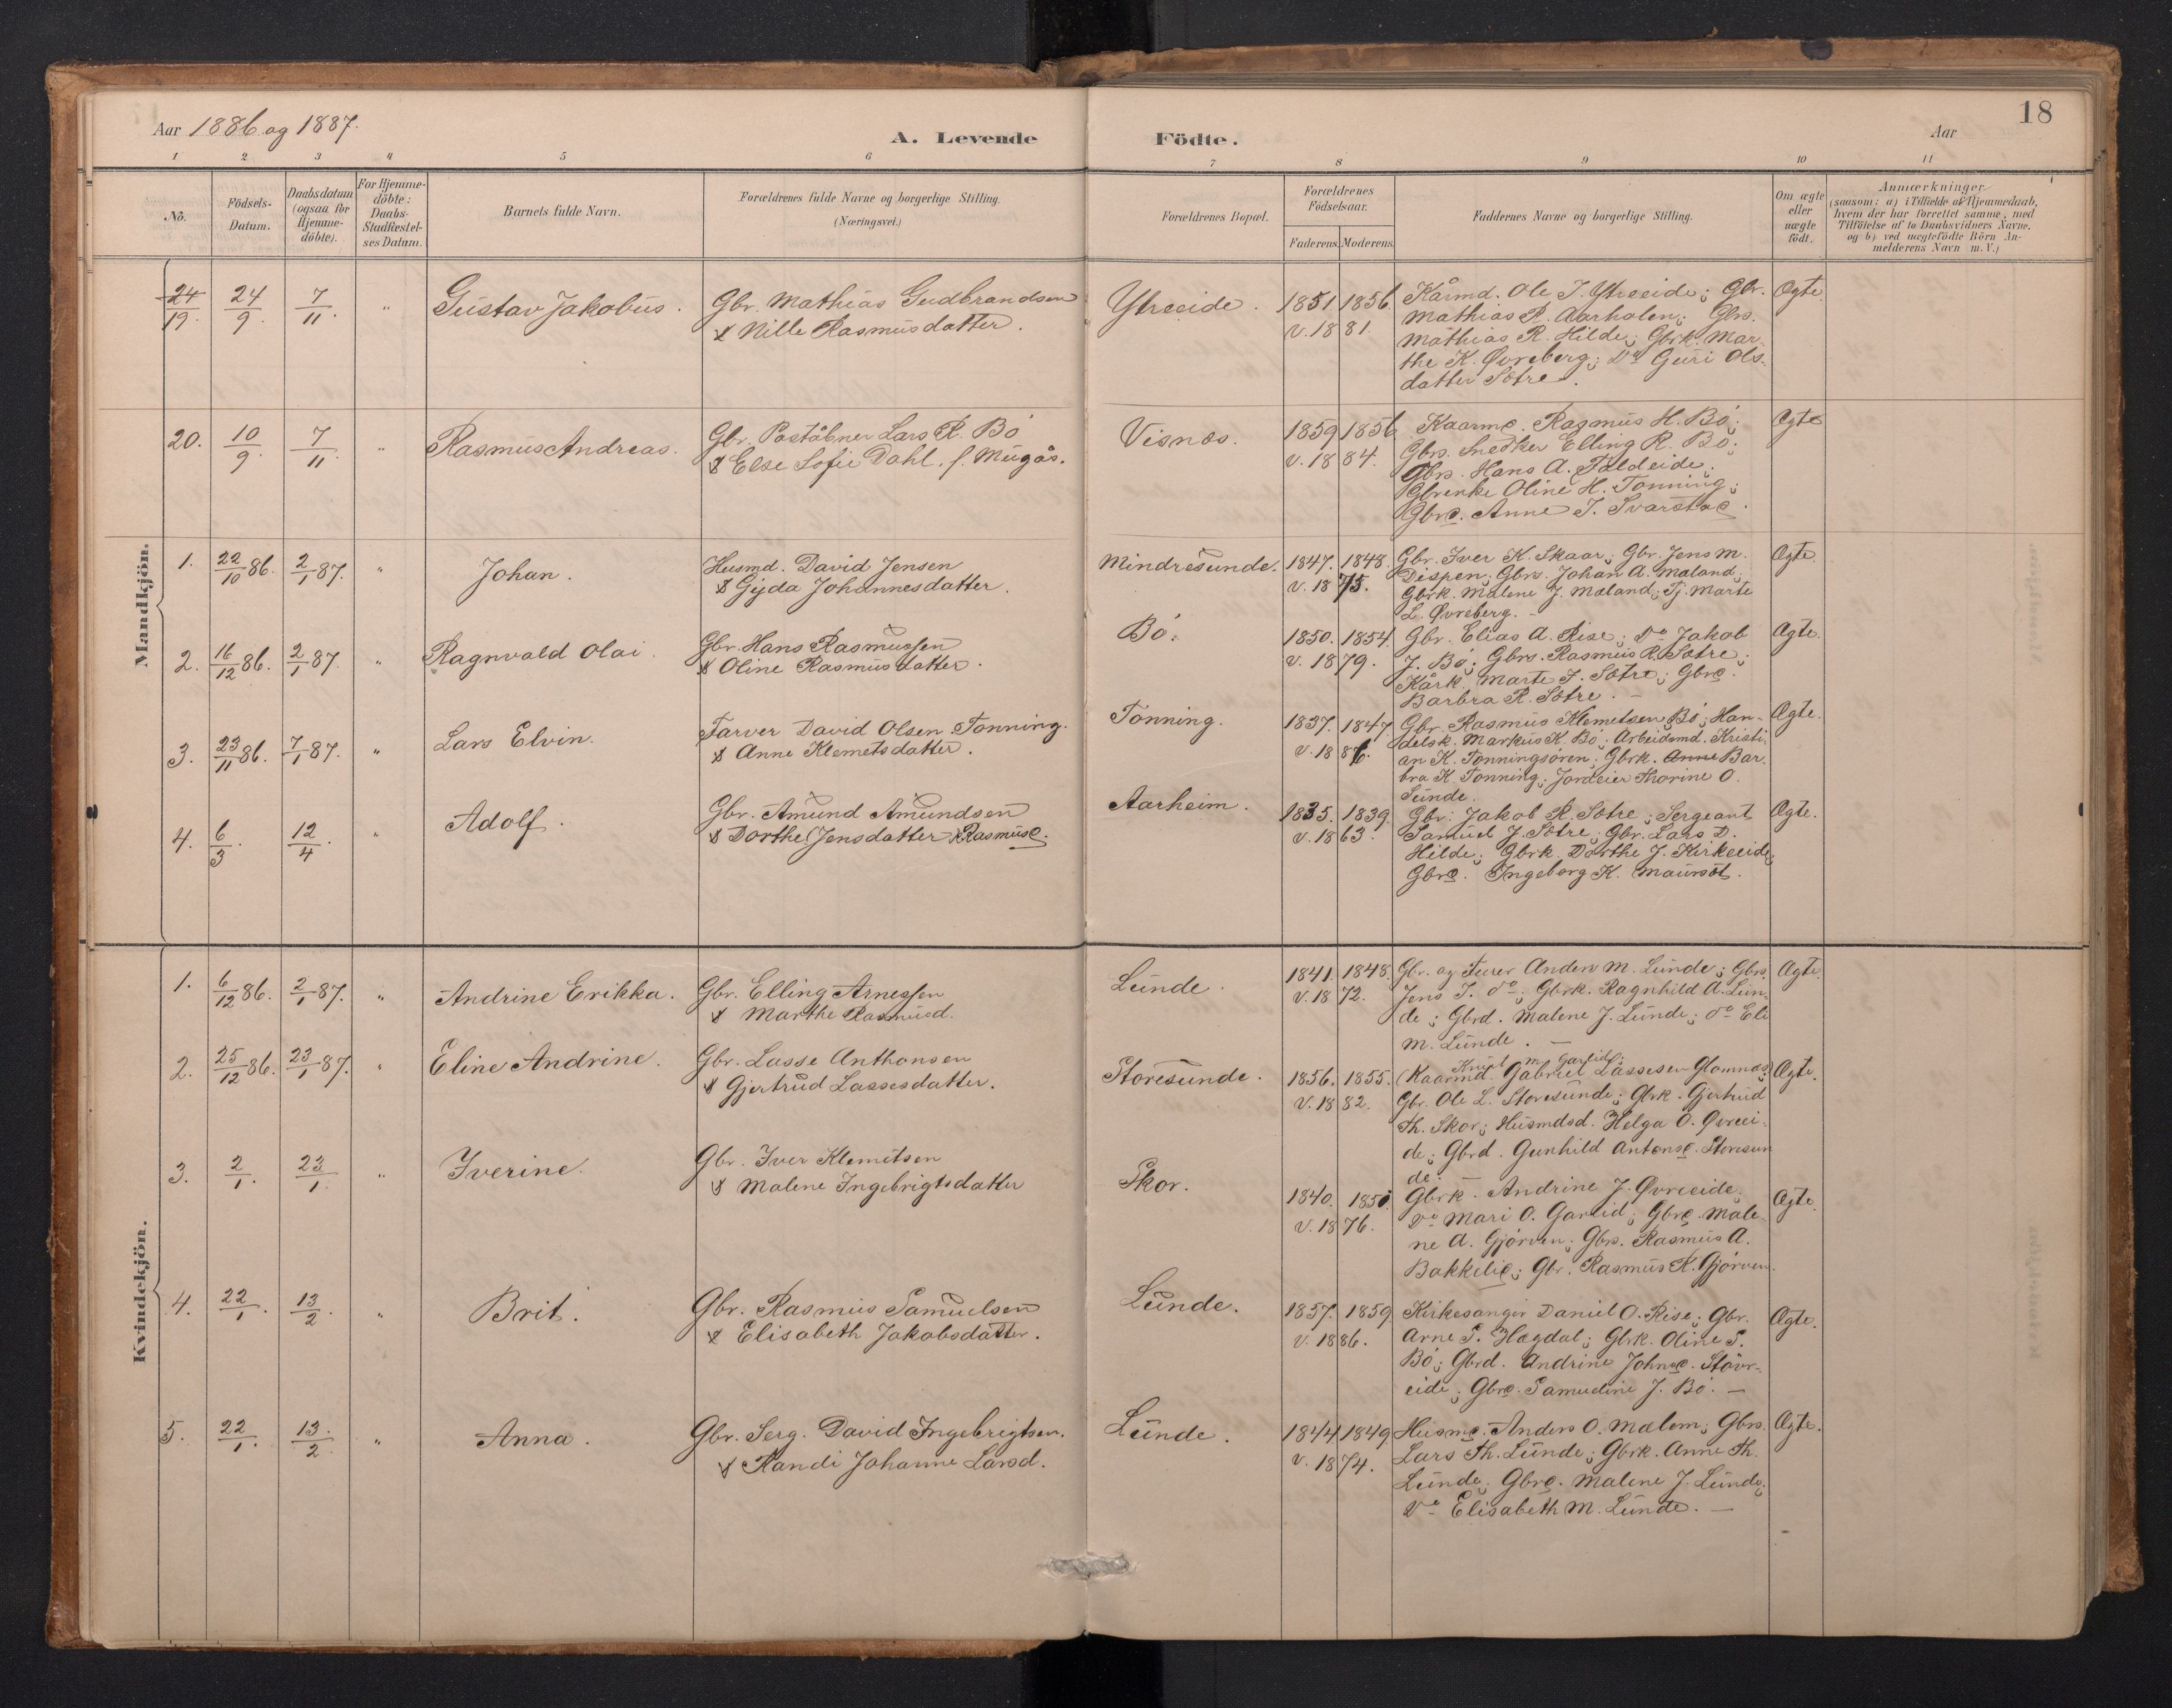 18
Aar 1886 og 1887.
A. Levende Födte.
Aar
1 2 3 4 5 6 7 8 9 10 11
No.
Födsels-
Datum.
Daabsdatum
(ogsaa for
Hjemme-
döbte).
For Hjemme-
döbte:
Daabs-
Stadfæstel-
ses Datum.
Barnets fulde Navn.
Forældrenes fulde Navne og borgerlige Stilling.
(Næringsvei.)
Forældrenes Bopæl.
Forældrenes
Födselsaar.
Faderens. Moderens.
Faddernes Navne og borgerlige Stilling.
Om ægte
eller
uægte
födt.
Anmærkninger
(saasom: a) i Tilfælde af Hjemmedaab,
hvem der har forrettet samme, med
Tilföielse af to Daabsvidners Navne,
og b) ved uægtefödte Börn An-
melderens Navn m. V.)
Mandkjön.
24 19. 24/9 7/11. " Gustav Jakobus.
Gbr. Mathias Gudbrandsen
& Nille Rasmusdatter.
Ytreeide.
1851. 1856.
v. 1881.
Kårmd. Ole J. Ytreeide; Gbr.
Mathias R. Aarholen; Gbrs.
Mathias R. Hilde; Gbrk. Mar-
the K. Øvreberg; Do Guri Ols-
datter Sætre.
Ægte.
20. 10/9. 7/11. " Rasmus Andreas.
Gbr. Poståbner Lars R. Bö
& Else Sofie Dahl, f. Mugås.
Visnæs.
1859 1856
v. 1884.
Kaarmd. Rasmus H. Bö;
Gbrs. Snedker Elling R. Bö;
Gbrs. Hans A. Faldeide;
Gbrenke Oline H. Tonning;
Gbrd. Anne J. Svarstad.
Ægte
1. 22/10 86. 2/1 87. " Johan.
Husmd. David Jensen
& Gjda Johannesdatter.
Mindresunde.
1847. 1848.
v. 1875.
Gbr. Iver K. Skaar; Gbr. Jens M.
Dispen; Gbrs. Johan A. Maland;
Gbrk. Malene J. Mæland; Tj. Marte
L. Øvreberg. -
Ægte.
2. 16/12 86. 2/1 87. " Ragnvald Olai.
Gbr. Hans Rasmussen
& Oline Rasmusdatter.
Bö.
1850. 1854.
v. 1879.
Gbr. Elias A. Rise; Do Jakob
J. Bö; Gbrs. Rasmus R. Sætre;
Kårk. Marte J. Sætre; Gbrd.
Barbra R. Sætre. -
Ægte.
3. 23/11 86. 7/1 87. " Lars Elvin.
Farver David Olsen Tonning.
& Anne Klemetsdatter.
Tonning.
1837. 1847
v. 1886.
Gbr. Rasmus Klemetsen Bö; Han-
delsk. Markus K. Bö; Arbeidsmd. Kristi-
an K. Tonningsören; Gbrk. Anne Bar-
bra K. Tonning; Jordeier Thorine O.
Sunde.
Ægte.
4. 6/3. 12/4. " Adolf.
Gbr. Amund Amundsen
& Dorthe (Jensdatter) Rasmusd.
Aarheim.
1835. 1839.
v. 1863.
Gbr. Jakob R. Sætre; Sergeant
Samuel J. Sætre; Gbr. Lars D.
Hilde; Gbrk. Dorthe J. Kirkeeide;
Gbrd. Ingeborg K. Maursæt.
Ægte.
Kvindekjön.
1. 6/12 86. 2/1 87. " Andrine Erikka.
Gbr. Elling Arnessen
& Marthe Rasmusd.
Lunde.
1841. 1848.
v. 1872.
Gbr. og Furer Anders M. Lunde; Gbrs.
Jens J. do; Gbrk. Ragnhild A. Lun-
de; Gbrd. Malene J. Lunde; do Eli
M. Lunde. -
Ægte.
2. 25/12 86. 23/1 87. " Eline Andrine.
Gbr. Lasse Anthonsen
& Gjertrud Lassesdatter.
Storesunde.
1856. 1855.
v. 1882.
Knut M. Garlid;
(Kaarmd. Gabriel Lassesen Glomnæs)
Gbr. Ole L. Storesunde; Gbrk. Gjertrud
Th. Skor; Husmdsd. Helga O. Øvreei-
de; Gbrd. Gunhild Antonsd. Storesun-
de.
Ægte.
3. 2/1. 23/1. " Iverine.
Gbr. Iver Klemetsen
& Malene Ingebrigtsdatter
Skor.
1840. 1850.
v. 1876.
Gbrk. Andrine J. Øvreeide;
Do Mari O. Garlid; Gbrd. Male-
ne A. Gjörven; Gbrs. Rasmus A.
Bakkelid; Gbr. Rasmus K. Gjörven.
Ægte.
4. 22/1. 13/2. " Brit.
Gbr. Rasmus Samuelsen
& Elisabeth Jakobsdatter.
Lunde.
1857. 1859
v. 1886.
Kirkesanger Daniel O. Rise; Gbr.
Arne S. Hægdal; Gbrk. Oline S.
Bö; Gbrd. Andrine Johnsd. Stövr-
eide; Gbrd. Samueline J. Bö. -
Ægte.
5. 22/1. 13/2. " Anna.
Gbr. Serg. David Ingebrigtsen.
& Randi Johanne Larsd.
Lunde.
1844 1849
v. 1874.
Husmd. Anders O. Malem; Gbrs.
Lars Th. Lunde; Gbrk. Anne Th.
Lunde; Gbrd. Malene J. Lunde;
Do Elisabeth M. Lunde. -
Ægte.